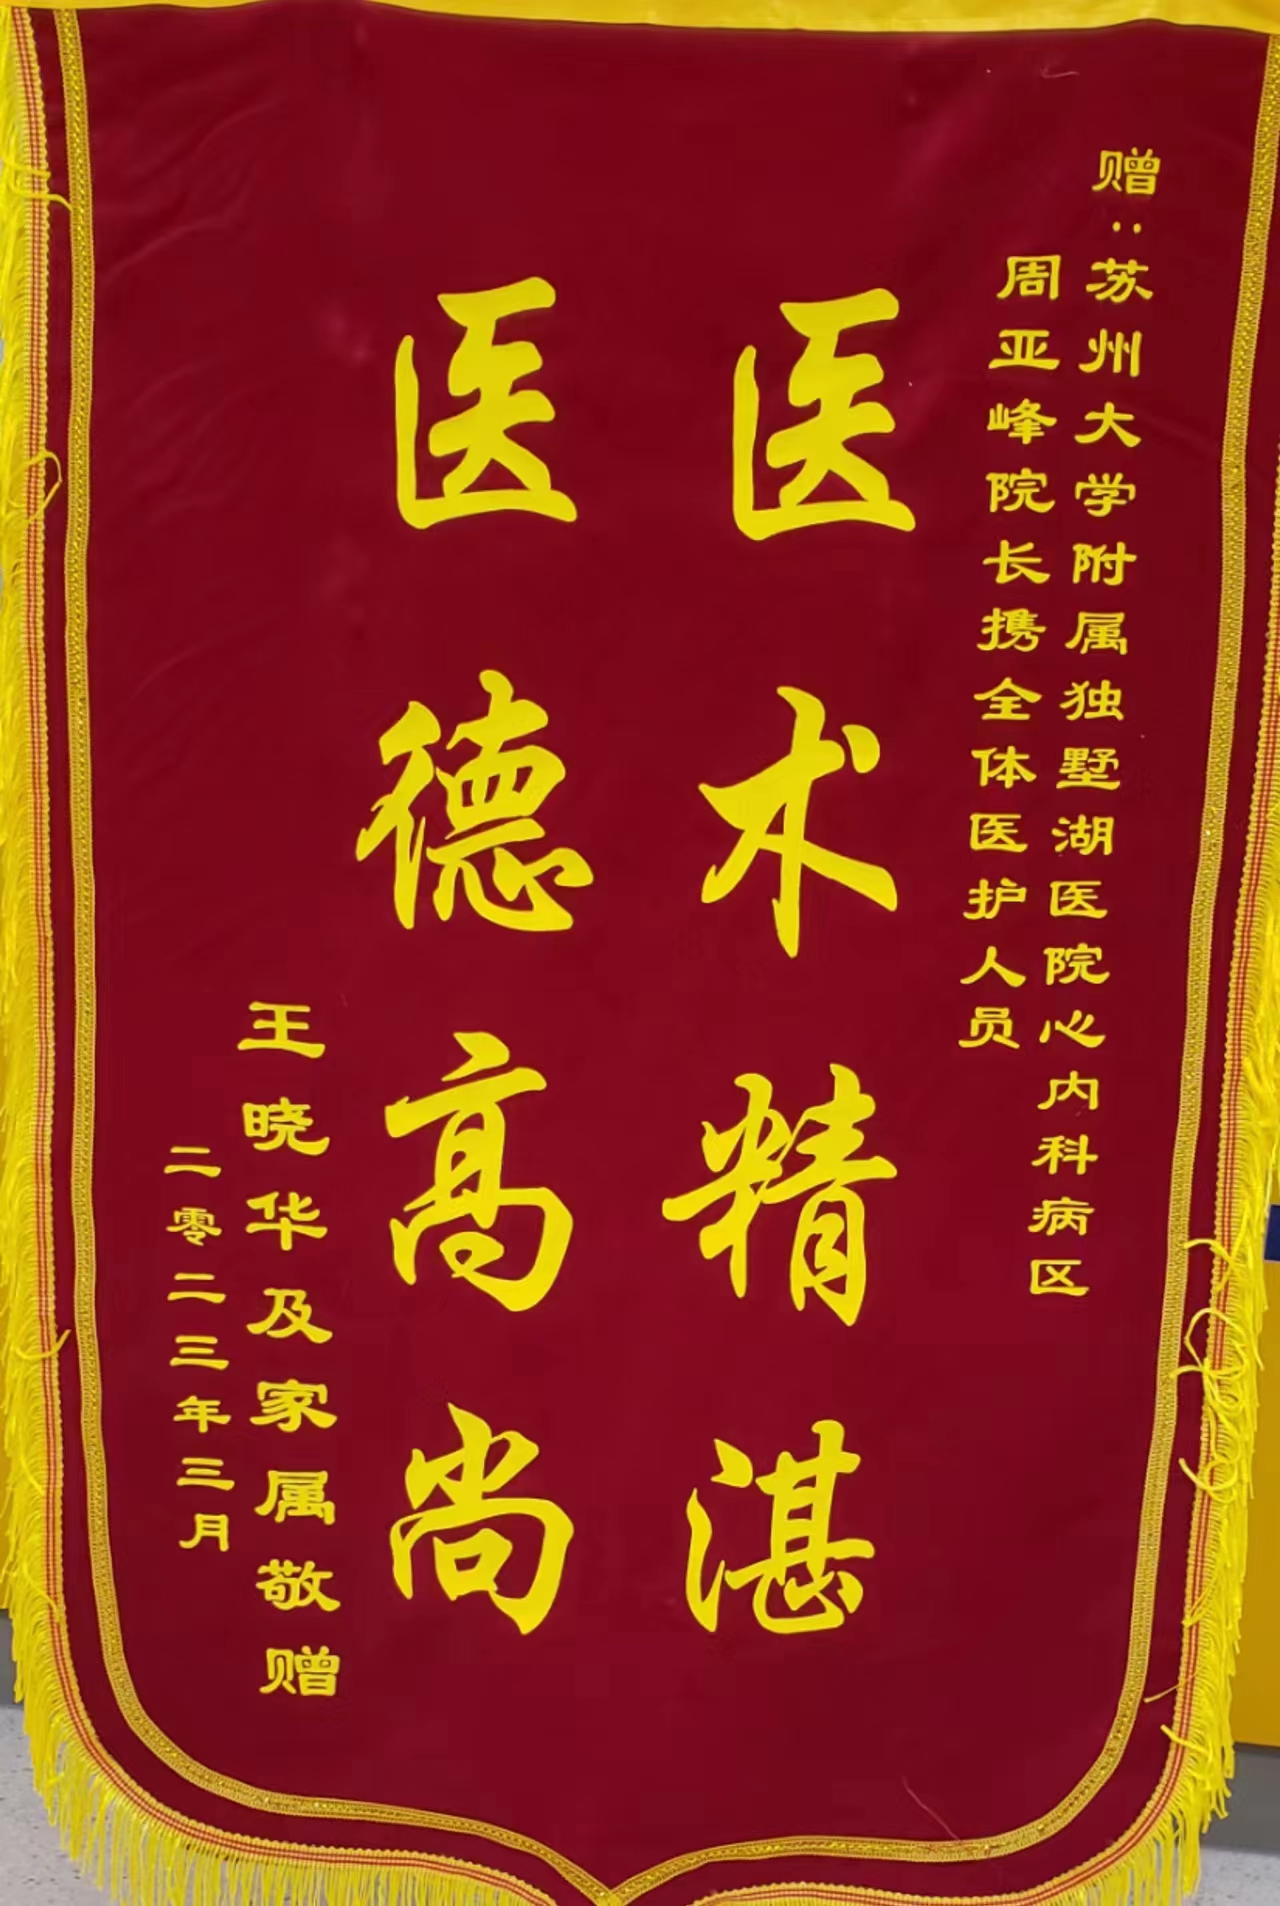 赠：苏州大学附属独墅湖医院心内科病区
周亚峰院长携全体医护人员
医术精湛
医德高尚
王晓华及家属敬赠
二零二三年三月